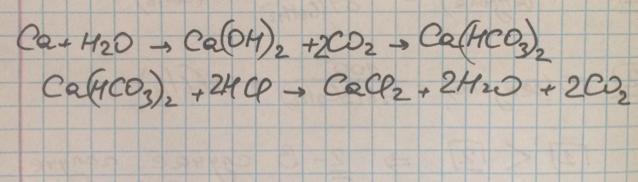 Ca + H2O → Ca(OH)2 + 2CO2 → Ca(HCO3)2
Ca(HCO3)2 + 2HCl → CaCl2 + 2H2O + 2CO2